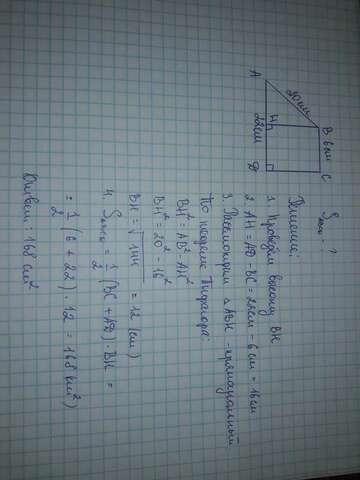 Sавсд - ?
B 6см C
20см
A H 22см D
Решение:
1. Проведём высоту BH
2. AH = AD - BC = 22см - 6см = 16см
3. Рассмотрим △ABH - прямоугольный
По теореме Пифагора:
BH² = AB² - AH²
BH² = 20² - 16²
BH = √144 = 12 (см)
4. Sавсд = 1/2 (BC + AD) · BH =
= 1/2 (6 + 22) · 12 = 168 (см²)
Ответ: 168 см²